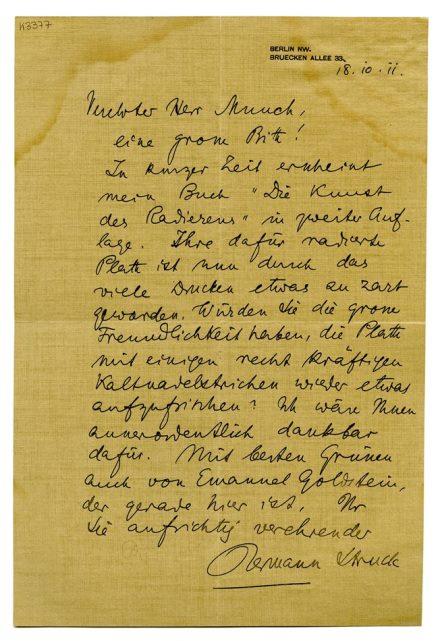 K3377
BERLIN NW.
BRUECKEN ALLEE 33.
18.10.11.
Verehrter Herr Munch,
eine grosse Bitte!
In kurzer Zeit erscheint
mein Buch "Die Kunst
des Radierens" in zweiter Auf-
lage. Ihre dafür radierte
Platte ist nun durch das
viele Drucken etwas zu zart
geworden. Würden Sie die grosse
Freundlichkeit haben, die Platte
mit einigen recht kräftigen
Kaltnadelstrichen wieder etwas
aufzufrischen? Ich wäre Ihnen
ausserordentlich dankbar
dafür. Mit besten Grüssen
auch von Emanuel Goldstein,
der gerade hier ist, Ihr
Sie aufrichtig verehrender
Hermann Struck